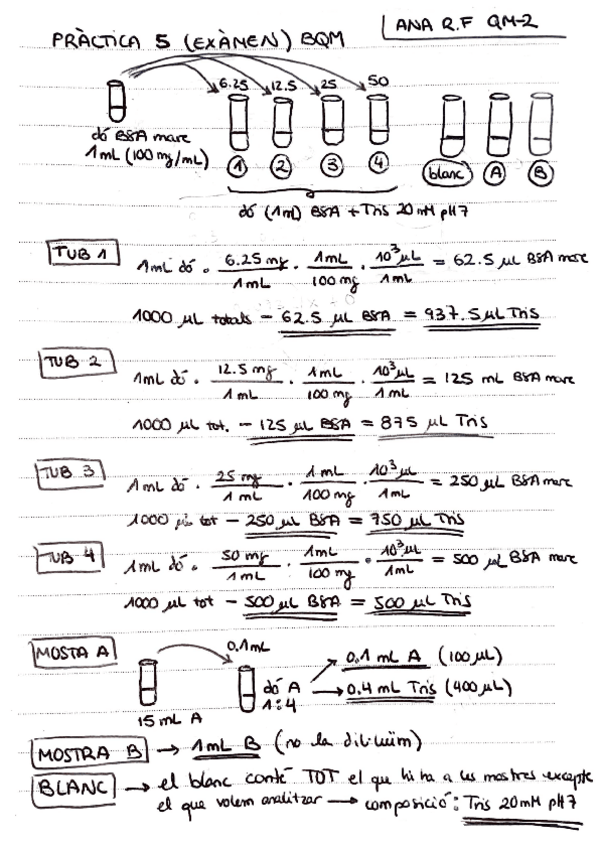 ANA R.F QM-2
PRÀCTICA 5 (EXÀMEN) BQM
6.25 12.5 25 50
dó BSA mare
1mL (100 mg/mL)
1 2 3 4 blanc A B
dó (1ml) BSA + Tris 20mM pH7
TUB 1
1mL dó · 6.25 mg / 1mL · 1mL / 100 mg · 10³ µL / 1mL = 62.5 µL BSA mare
1000 µL totals - 62.5 µL BSA = 937.5 µL Tris
TUB 2
1mL dó · 12.5 mg / 1mL · 1mL / 100 mg · 10³ µL / 1mL = 125 mL BSA mare
1000 µL tot. - 125 µL BSA = 875 µL Tris
TUB 3
1mL dó · 25 mg / 1mL · 1mL / 100 mg · 10³ µL / 1mL = 250 µL BSA mare
1000 µL tot - 250 µL BSA = 750 µL Tris
TUB 4
1mL dó · 50 mg / 1mL · 1mL / 100 mg · 10³ µL / 1mL = 500 µL BSA mare
1000 µL tot - 500 µL BSA = 500 µL Tris
MOSTA A
0,1mL
15 mL A
dó A
1:4
0.1 mL A (100 µL)
0.4 mL Tris (400 µL)
MOSTRA B → 1mL B (no la dil·luïm)
BLANC → el blanc conté TOT el que hi ha a les mostres excepte
el que volem analitzar → composició: Tris 20mM pH7